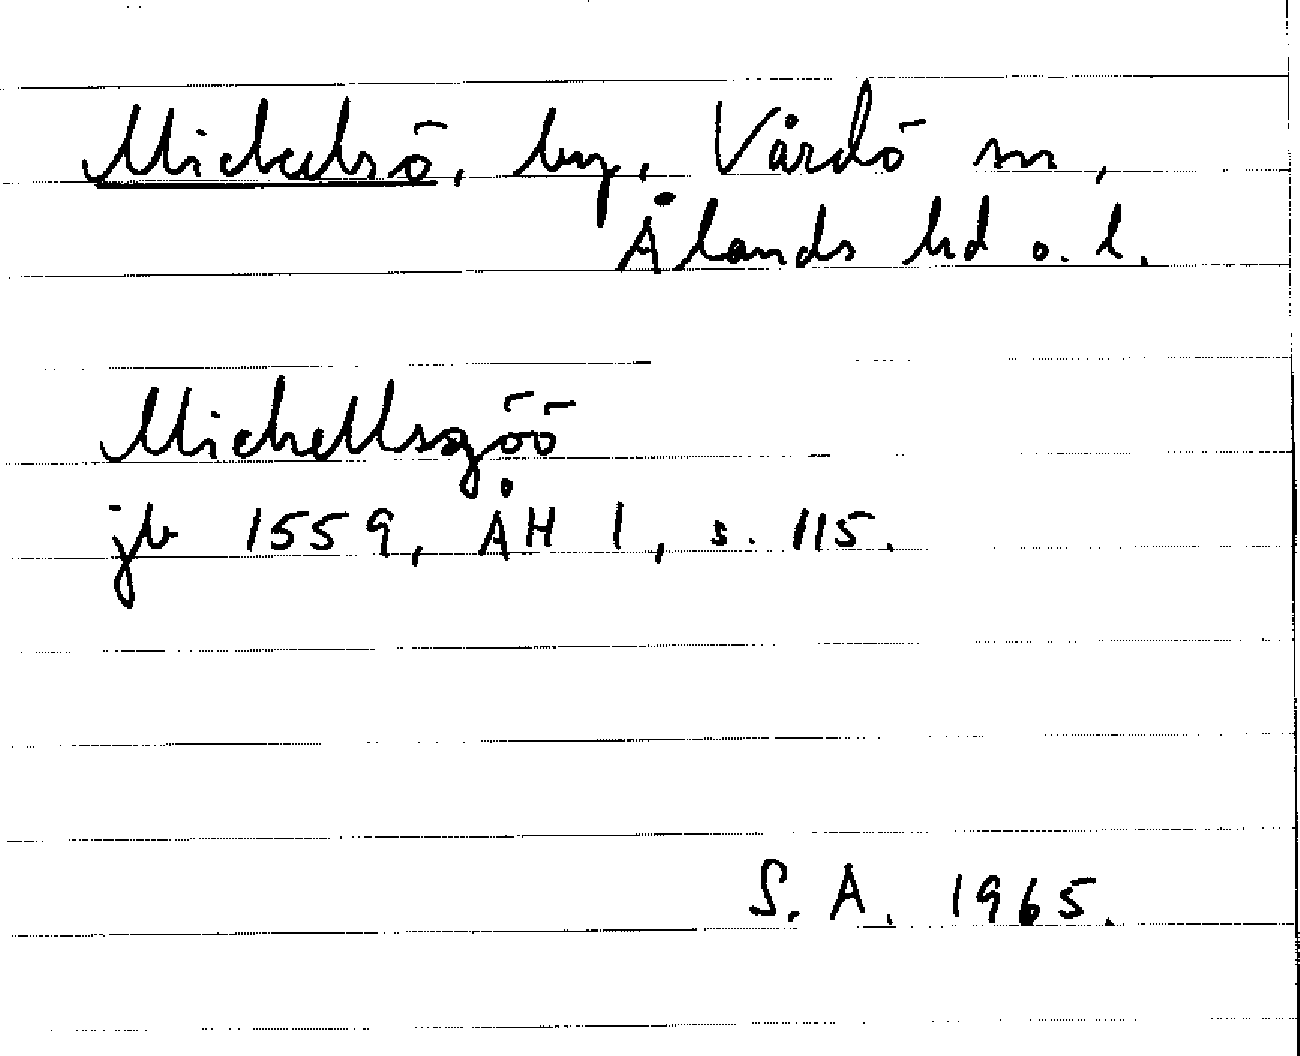 Mickelsö, by, Vårdö sn,
Ålands hd o. l.
Michellszöö
jb 1559, ÅH 1, s. 115.
S. A. 1965.